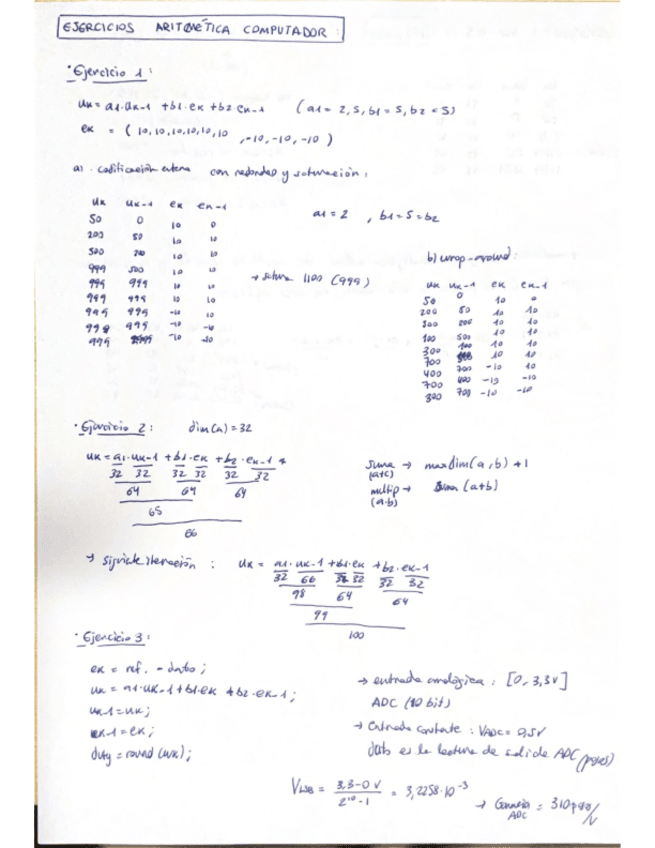 EJERCICIOS ARITMÉTICA COMPUTADOR:
· Ejercicio 1:
uk = a1·uk-1 + b1·ek + b2·ek-1 (a1 = 2,5, b1 = 5, b2 = 5)
ek = (10, 10, 10, 10, 10, 10, -10, -10, -10)
a) · codificación entera con redondeo y saturación:
uk uk-1 ek ek-1
50 0 10 0
200 50 10 10
500 200 10 10
999 500 10 10
999 999 10 10
999 999 10 10
999 999 -10 10
999 -10 -10
999 -10 -10
a1 = 2, b1 = 5 = b2
→ satura 1100 (999)
b) wrap-around:
uk uk-1 ek ek-1
50 0 10 0
200 50 10 10
500 200 10 10
100 500 10 10
300 100 10 10
700 10 10
400 700 -10 10
700 400 -10 -10
300 700 -10 -10
· Ejercicio 2: dim(a) = 32
uk = a1·uk-1 + b1·ek + b2·ek-1
32 32 32 32 32 32
64 64 64
65
66
suma → max dim(a, b) + 1
multip → suma (a+b)
(a·b)
→ siguiente iteración: uk = a1·uk-1 + b1·ek + b2·ek-1
32 66 32 32 32 32
98 64 64
99
100
· Ejercicio 3:
ek = ref. - dato;
uk = a1·uk-1 + b1·ek + b2·ek-1;
uk-1 = uk;
ek-1 = ek;
duty = round(uk);
→ entrada analógica: [0, 3,3v]
ADC (10 bit)
→ Entrada constante: VADC = 0,5V
dato es la lectura de salida ADC
VLSB = 3,3-0 V / 2^10 - 1 = 3,2258·10^-3
→ Ganancia ADC = 310